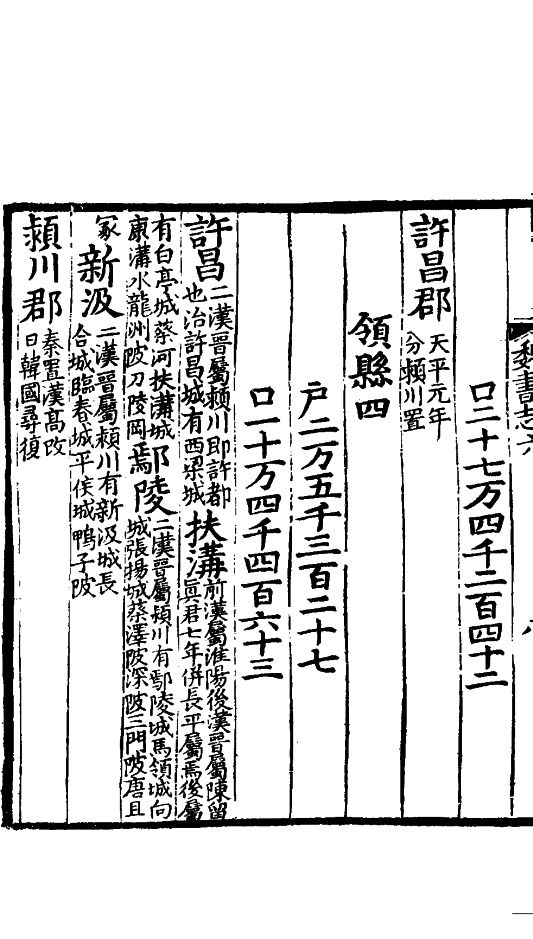 魏書志六 八
口二十七万四千二百四十二
許昌郡 天平元年分頴川置
領縣四
戶二万五千三百二十七
口一十万四千四百六十三
許昌 二漢晉屬頴川即許都也治許昌城有西梁城 扶溝 前漢屬淮陽後漢晉屬陳留眞君七年併長平屬焉後屬
有白亭城蔡河扶溝城康溝水龍洲陂刀陵岡 鄢陵 二漢晉屬頴川有鄢陵城馬領城向城張揚城蔡澤陂深陂三門陂唐且
冢 新汲 二漢晉屬頴川有新汲城長合城臨春城平侯城鴨子陂
頴川郡 秦置漢高改曰韓國尋復